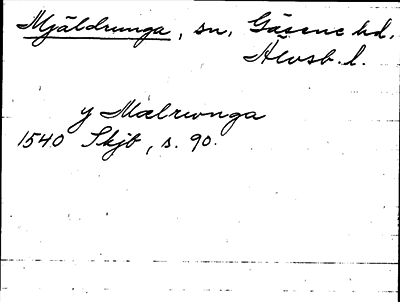 Mjäldrunga, sn, Gäsene hd.
Älvsb. l.
y Mælrunga
1540 Skjb, s. 90.